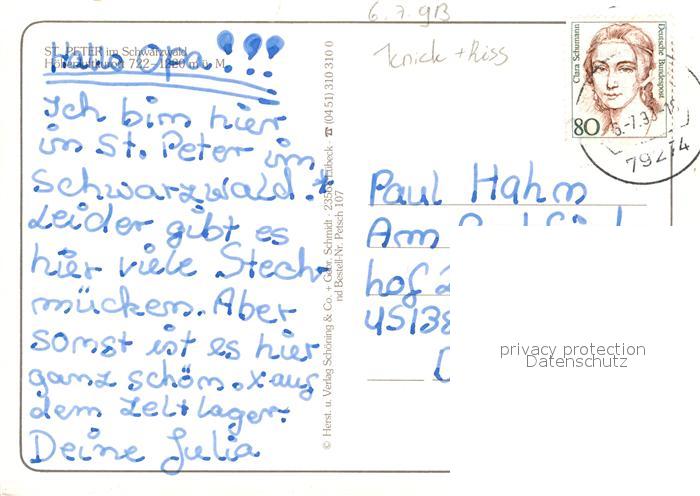 6.7.93
Knick + Riss
ST. PETER im Schwarzwald
Höhenluftkurort 722–1220 m ü. M.
Hallo Opa!!!
Ich bin hier
in St. Peter im
Schwarzwald.
Leider gibt es
hier viele Stech-
mücken. Aber
sonst ist es hier
ganz schön. X aus
dem Zeltlager.
Deine Julia
© Herst. u. Verlag Schöning & Co. + Gebr. Schmidt · Lübeck · ☎ (04 51) 310 310 0
nd Bestell-Nr. Petsch 1107
Clara Schumann
Deutsche Bundespost
80
79274
Paul Hahn
Am
hof
45138
privacy protection
Datenschutz